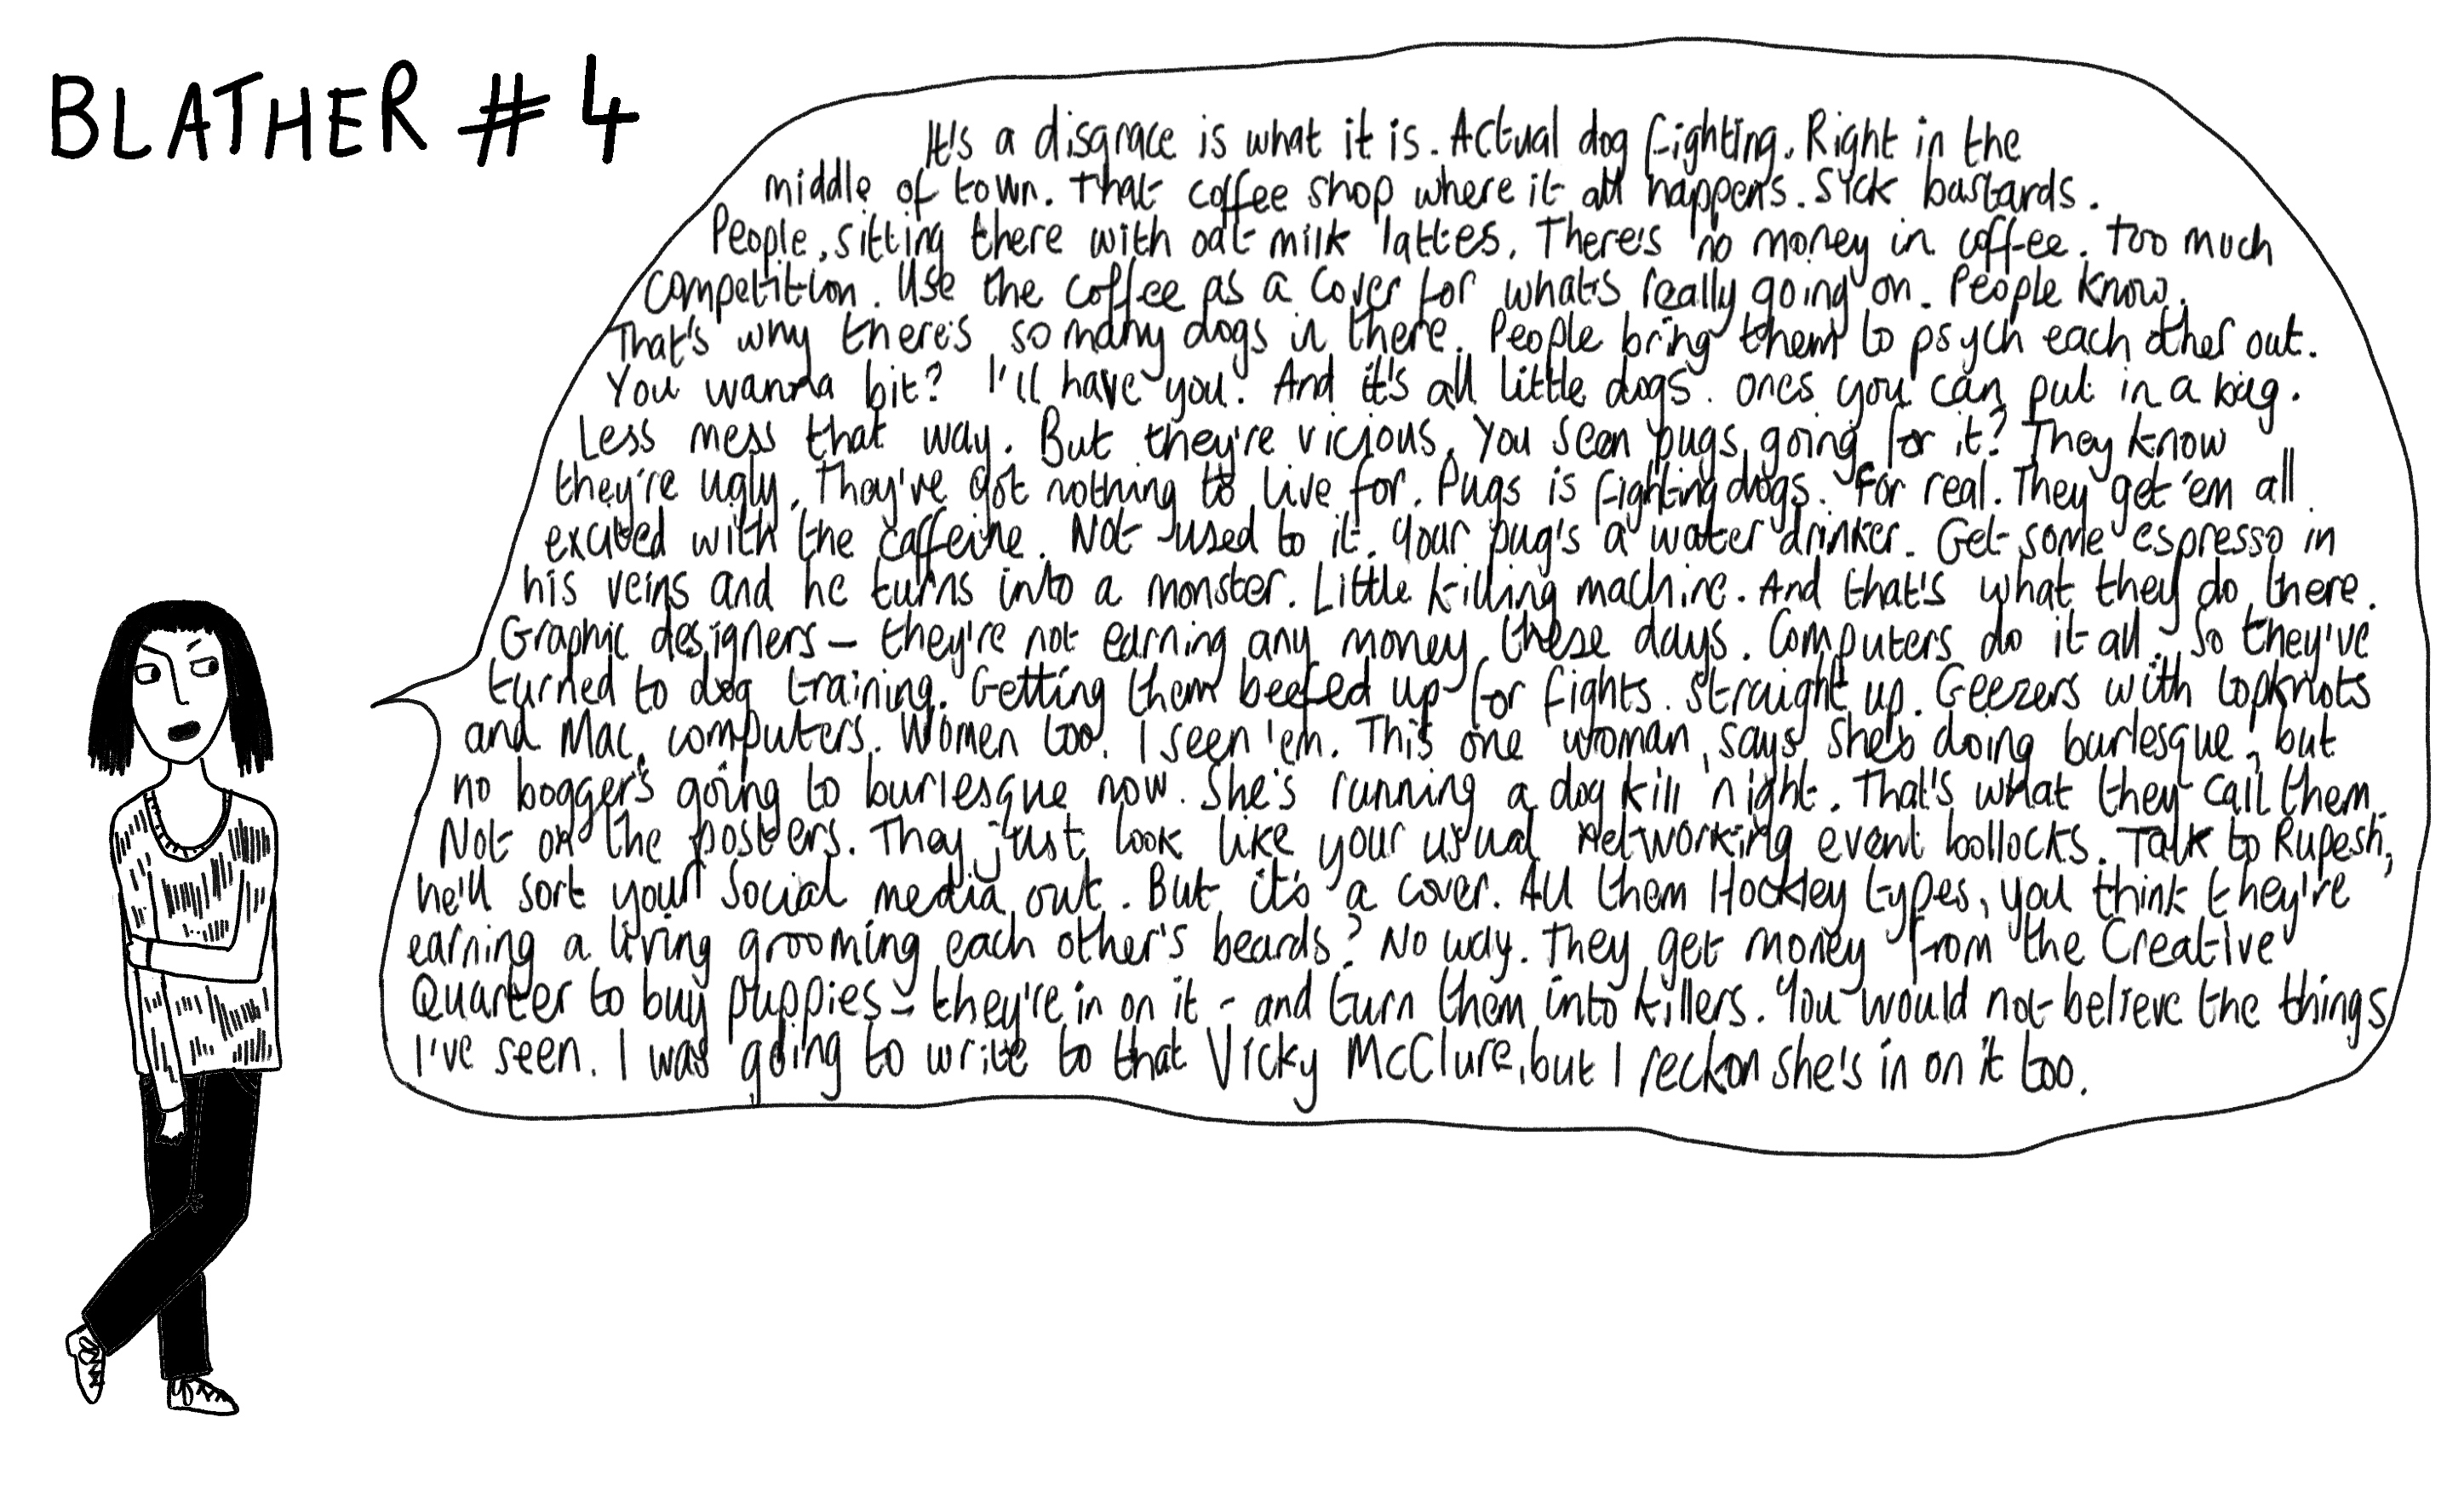 BLATHER #4
It's a disgrace is what it is. Actual dog fighting. Right in the
middle of town. That coffee shop where it all happens. Sick bastards.
People, sitting there with oat milk lattes. There's no money in coffee. Too much
competition. Use the coffee as a cover for what's really going on. People know.
That's why there's so many dogs in there. People bring them to psych each other out.
You wanna bit? I'll have you. And it's all little dogs. ones you can put in a bag.
Less mess that way. But they're vicious. You seen pugs going for it? They know
they're ugly. They've got nothing to live for. Pugs is fighting dogs. For real. They get 'em all
excited with the caffeine. Not used to it. Your pug's a water drinker. Get some espresso in
his veins and he turns into a monster. Little killing machine. And that's what they do there.
Graphic designers - they're not earning any money these days. Computers do it all. So they've
turned to dog training. Getting them beefed up for fights. Straight up. Geezers with topknots
and Mac computers. Women too. I seen 'em. This one woman, says she's doing burlesque, but
no bogger's going to burlesque now. She's running a dog kill night. That's what they call them.
Not on the posters. They just look like your usual networking event bollocks. Talk to Rupesh,
he'll sort your social media out. But it's a cover. All them Hockley types, you think they're
earning a living grooming each other's beards? No way. They get money from the Creative
Quarter to buy puppies - they're in on it - and turn them into killers. You would not believe the things
I've seen. I was going to write to that Vicky McClure, but I reckon she's in on it too.